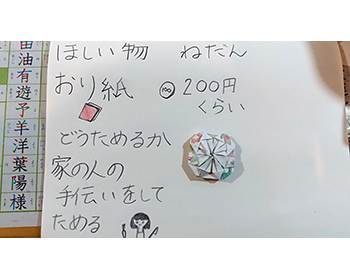 由油有遊予羊洋葉陽様
ほしい物 ねだん
おり紙 100 200円
くらい
どうためるか
家の人の
手伝いをして
ためる